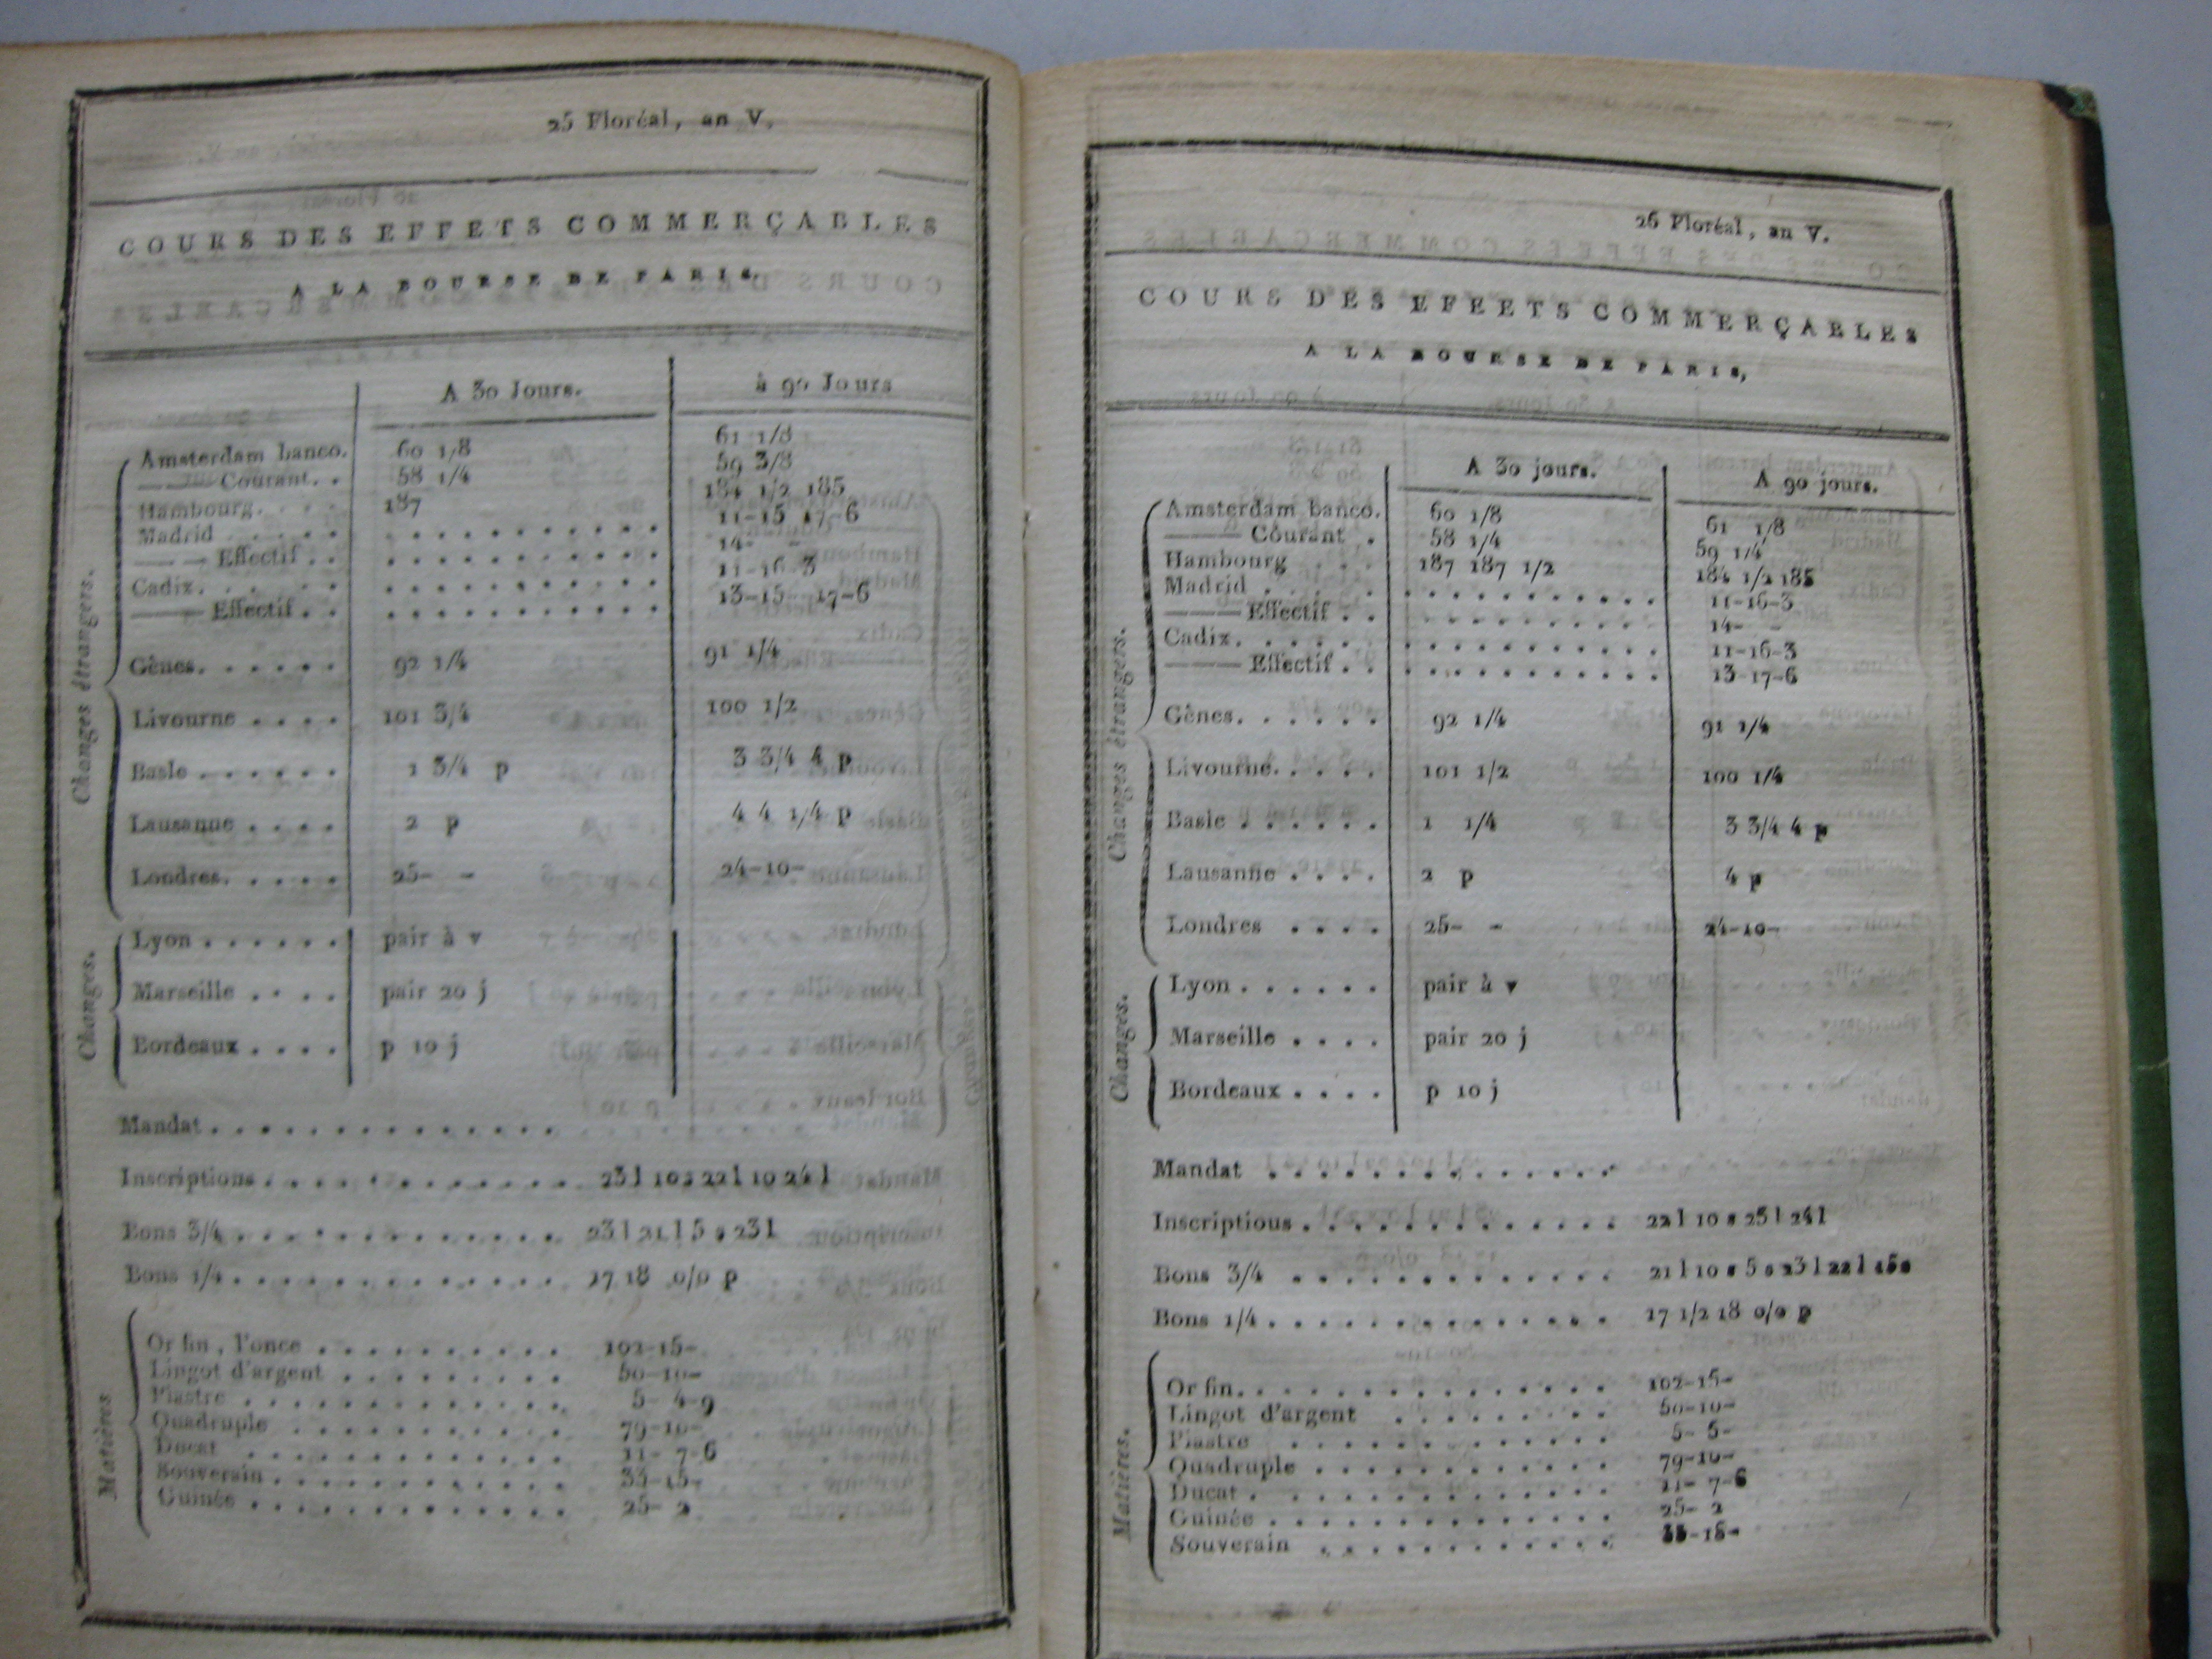 25 Floréal, an V.
COURS DES EFFETS COMMERÇABLES
A LA BOURSE DE PARIS.
A 30 Jours. à 90 Jours
Changes étrangers.
Amsterdam banco. 60 1/8 61 1/8
——— Courant. . 58 1/4 59 3/8
Hambourg. . . . 187 184 1/2 185
Madrid . . . . . . . . . . . . . . . . 11-15 17-6
——— Effectif . . . . . . . . . . . . . 14- -
Cadix. . . . . . . . . . . . . . . . . 11-16-3
——— Effectif . . . . . . . . . . . . . 13-15- 17-6
Gênes. . . . . . 92 1/4 91 1/4
Livourne . . . . 101 3/4 100 1/2
Basle . . . . . . 1 3/4 p 3 3/4 4 p
Lausanne . . . . 2 p 4 4 1/4 p
Londres. . . . . 25- - 24-10-
Changes.
Lyon . . . . . . pair à v
Marseille . . . . pair 20 j
Bordeaux . . . . p 10 j
Mandat . . . . . . . . . . . . . . .
Inscriptions . . . . . . . . . . . . . 23 l 10 s 22 l 10 24 l
Bons 3/4 . . . . . . . . . . . . . . 23 l 21 l 5 s 23 l
Bons 1/4 . . . . . . . . . . . . . . 17 18 0/0 p
Matières
Or fin, l'once . . . . . . . . . . 102-15-
Lingot d'argent . . . . . . . . . 50-10-
Piastre . . . . . . . . . . . . . 5- 4-9
Quadruple . . . . . . . . . . . 79-10-
Ducat . . . . . . . . . . . . . 11- 7-6
Souverain . . . . . . . . . . . . 33-15-
Guinée . . . . . . . . . . . . . 25- 2
26 Floréal, an V.
COURS DES EFEETS COMMERÇABLES
A LA BOURSE DE PARIS,
A 30 jours. A 90 jours.
Changes étrangers.
Amsterdam banco. 60 1/8 61 1/8
——— Courant . 58 1/4 59 1/4
Hambourg . . . 187 187 1/2 184 1/2 185
Madrid . . . . . . . . . . . . . . . . 11-16-3
——— Effectif . . . . . . . . . . . . . 14- -
Cadix. . . . . . . . . . . . . . . . . 11-16-3
——— Effectif . . . . . . . . . . . . . 13-17-6
Gênes. . . . . . 92 1/4 91 1/4
Livourne. . . . . 101 1/2 100 1/4
Basle . . . . . . 1 1/4 3 3/4 4 p
Lausanne . . . . 2 p 4 p
Londres . . . . 25- - 24-10-
Changes.
Lyon . . . . . . pair à v
Marseille . . . . pair 20 j
Bordeaux . . . . p 10 j
Mandat . . . . . . . . . . . . . .
Inscriptious . . . . . . . . . . . . . 22 l 10 s 23 l 24 l
Bons 3/4 . . . . . . . . . . . . . 21 l 10 s 5 s 23 l 22 l 15s
Bons 1/4 . . . . . . . . . . . . . . 17 1/2 18 0/0 p
Matières.
Or fin. . . . . . . . . . . . . . . 102-15-
Lingot d'argent . . . . . . . . . 50-10-
Piastre . . . . . . . . . . . . . 5- 5-
Quadruple . . . . . . . . . . . . 79-10-
Ducat . . . . . . . . . . . . . . 11- 7-6
Guinée . . . . . . . . . . . . . . 25- 2
Souverain . . . . . . . . . . . . 33-15-